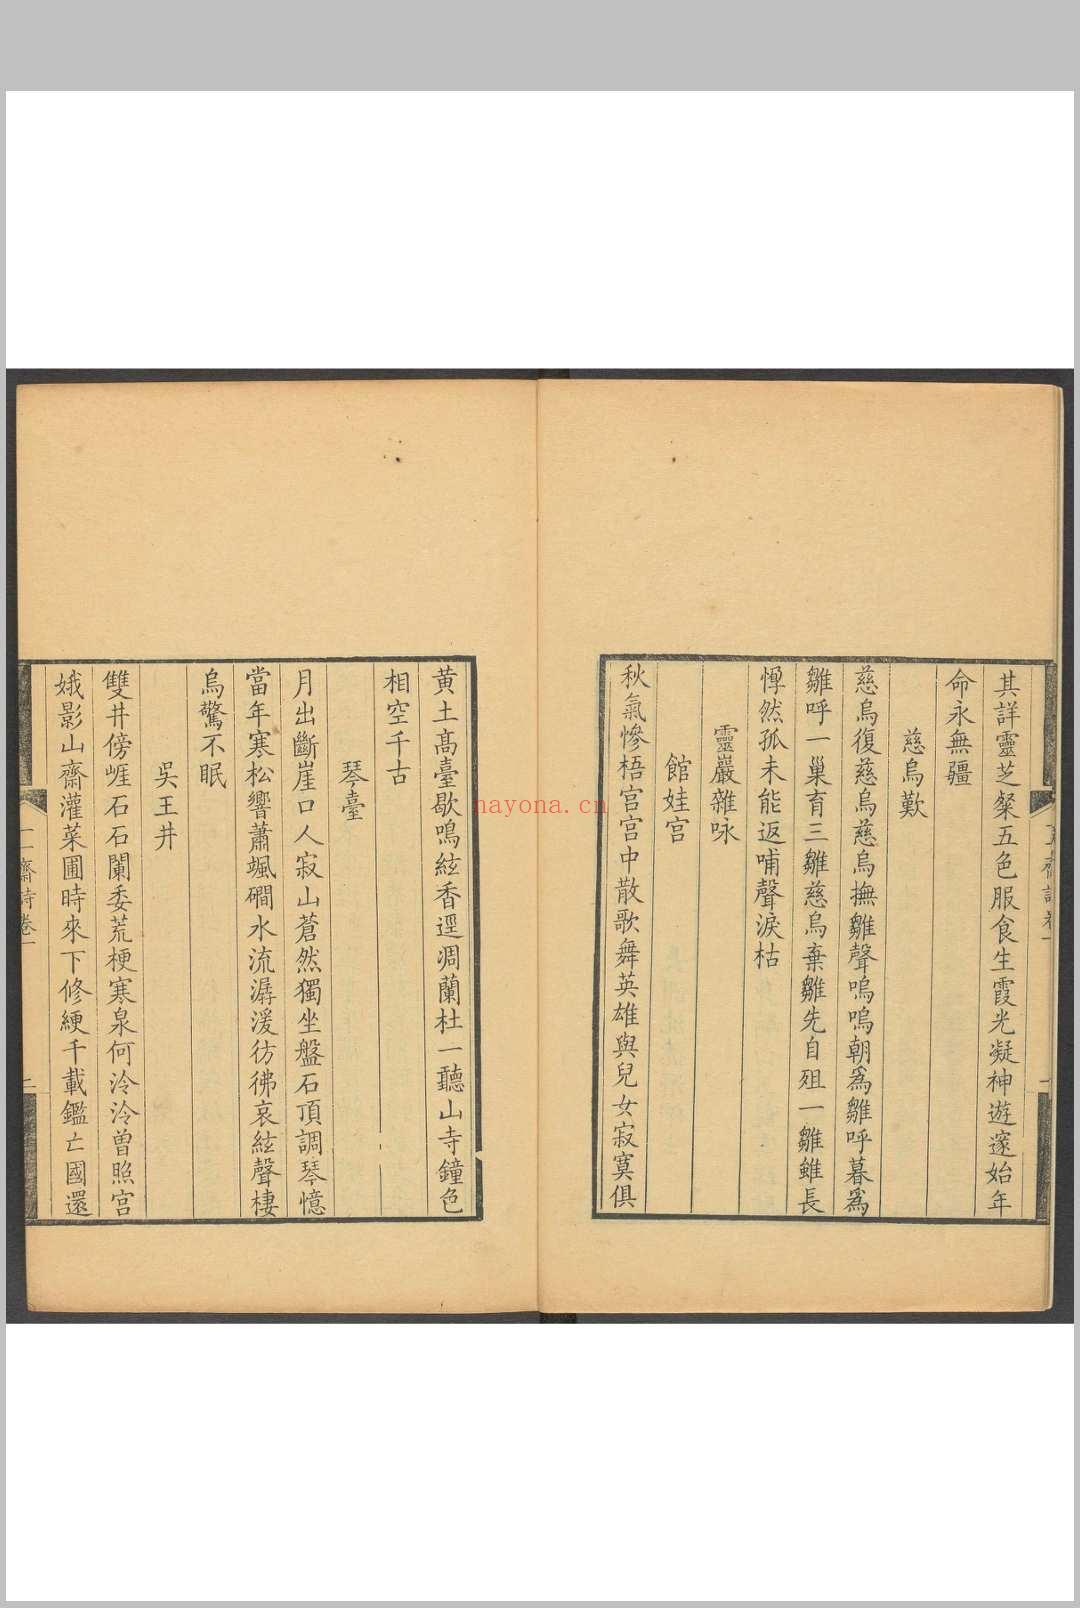 其詳靈芝粲五色服食生霞光凝神遊邃始年
命永無疆
慈烏歎
慈烏復慈烏慈烏撫雛聲嗚嗚朝爲雛呼暮爲
雛呼一巢育三雛慈烏棄雛先自殂一雛雖長
惸然孤未能返哺聲淚枯
靈巖雜咏
館娃宫
秋氣慘梧宫宫中散歌舞英雄與兒女寂寞俱
黄土高臺歇鳴絃香逕凋蘭杜一聽山寺鐘色
相空千古
琴臺
月出斷崖口人寂山蒼然獨坐盤石頂調琴憶
當年寒松響蕭颯磵水流潺湲彷彿哀絃聲棲
烏驚不眠
吳王井
雙井傍崕石石闌委荒梗寒泉何泠泠曾照宫
娥影山齋灌菜圃時來下修綆千載鑑亡國還
齋詩卷一
二
nayona.cn